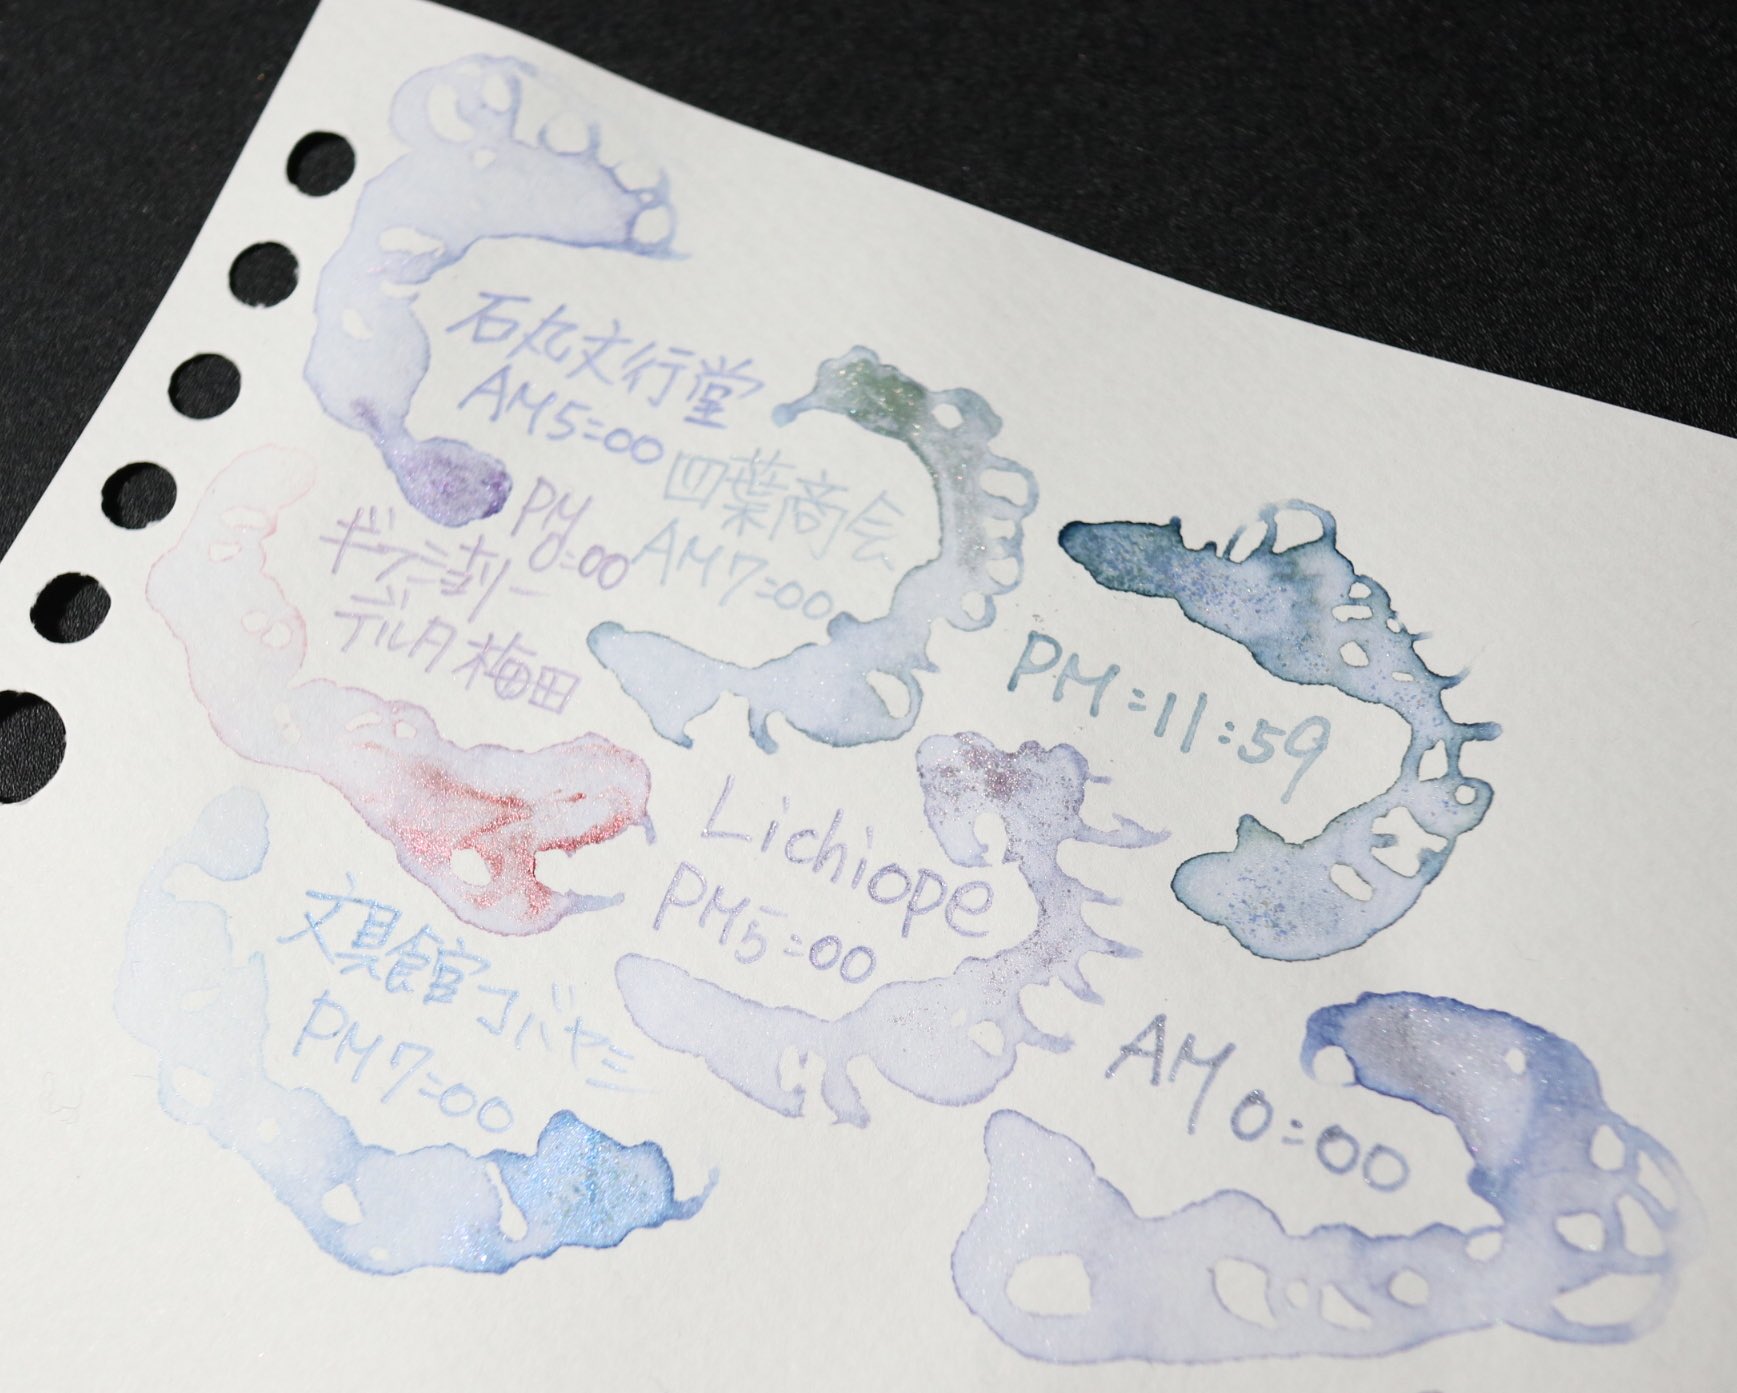 石丸文行堂
AM5:00
四葉商会
AM7:00
PM
0:00
ギフショナリー
デルタ梅田
PM:11:59
Lichiope
PM5:00
文具館コバヤシ
PM7:00
AM0:00